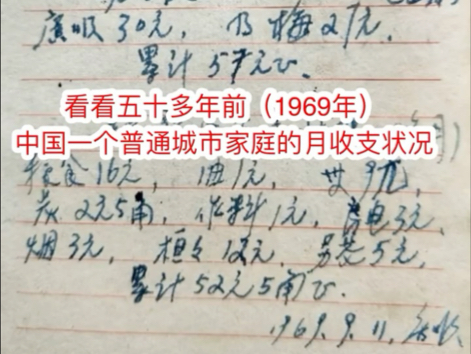 30元, 梅27元,
累计57元正.
看看五十多年前（1969年）
中国一个普通城市家庭的月收支状况
粮食16元, 油1元,
炭2元5角, 作料1元, 电3元,
烟3元, 12元, 另花5元,
累计52元5角正.
1969.9.11.